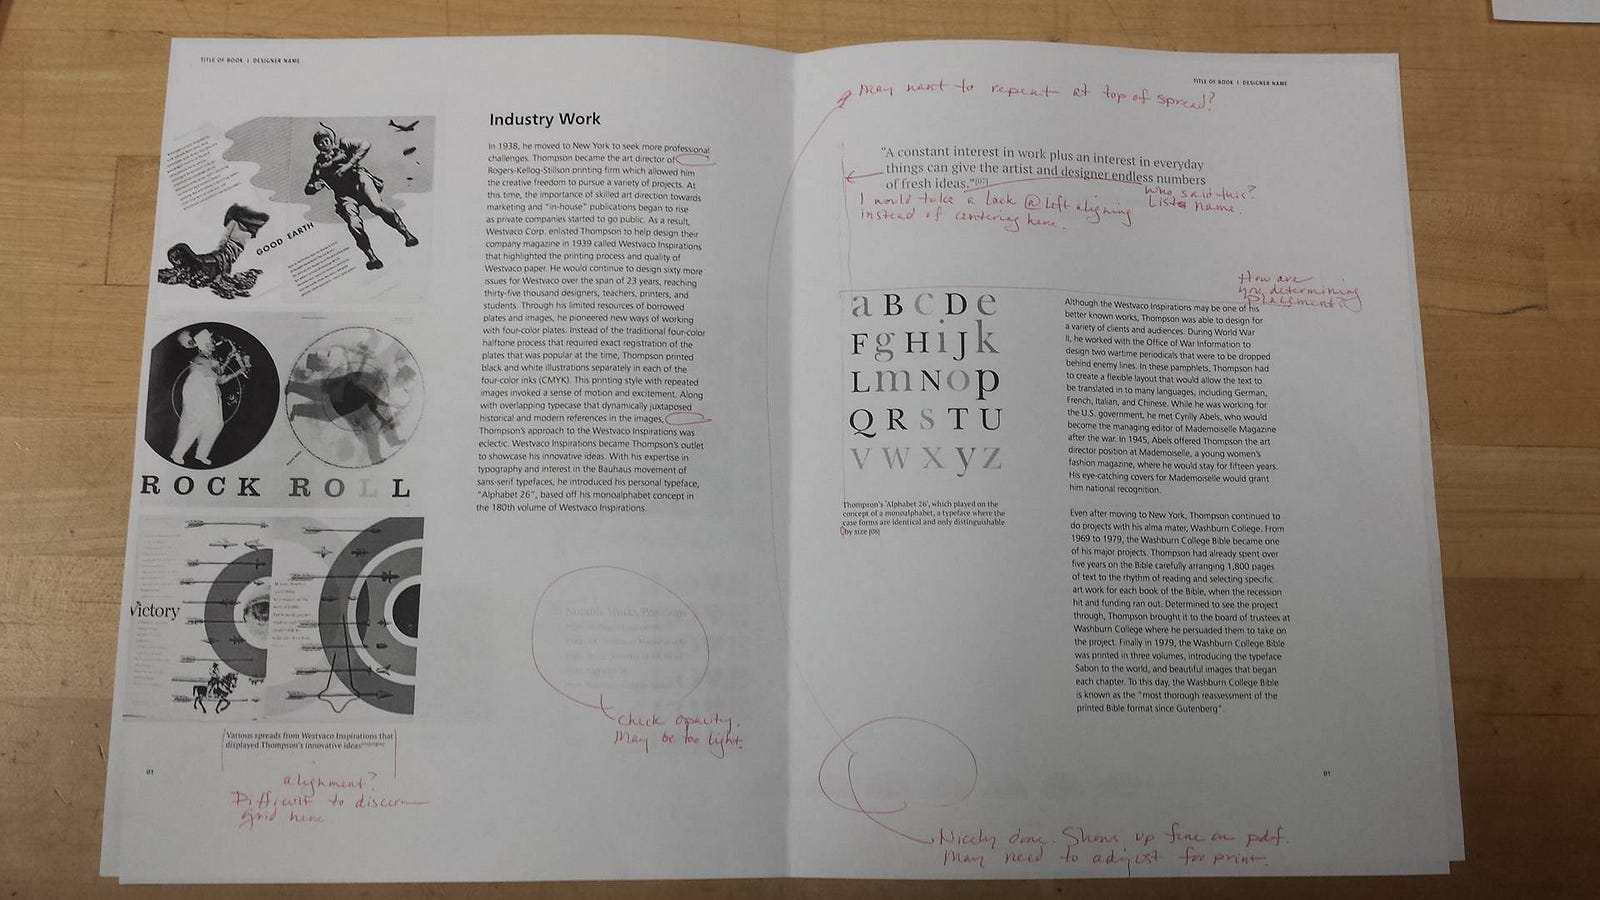 TITLE OF BOOK | DESIGNER NAME
GOOD EARTH
ROCK ROLL
Victory
Various spreads from Westvaco Inspirations that
displayed Thompson's innovative ideas
alignment?
Difficult to discern
grid here.
01
Industry Work
In 1938, he moved to New York to seek more professional
challenges. Thompson became the art director of
Rogers-Kellog-Stillson printing firm which allowed him
the creative freedom to pursue a variety of projects. At
this time, the importance of skilled art direction towards
marketing and "in-house" publications began to rise
as private companies started to go public. As a result,
Westvaco Corp. enlisted Thompson to help design their
company magazine in 1939 called Westvaco Inspirations
that highlighted the printing process and quality of
Westvaco paper. He would continue to design sixty more
issues for Westvaco over the span of 23 years, reaching
thirty-five thousand designers, teachers, printers, and
students. Through his limited resources of borrowed
plates and images, he pioneered new ways of working
with four-color plates. Instead of the traditional four-color
halftone process that required exact registration of the
plates that was popular at the time, Thompson printed
black and white illustrations separately in each of the
four-color inks (CMYK). This printing style with repeated
images invoked a sense of motion and excitement. Along
with overlapping typecase that dynamically juxtaposed
historical and modern references in the images,
Thompson's approach to the Westvaco Inspirations was
eclectic. Westvaco Inspirations became Thompson's outlet
to showcase his innovative ideas. With his expertise in
typography and interest in the Bauhaus movement of
sans-serif typefaces, he introduced his personal typeface,
"Alphabet 26", based off his monoalphabet concept in
the 180th volume of Westvaco Inspirations.
Notable Works/Positions
Check opacity.
May be too light.
TITLE OF BOOK | DESIGNER NAME
May want to repeat at top of spread?
"A constant interest in work plus an interest in everyday
things can give the artist and designer endless numbers
of fresh ideas."[07]
Who said this?
List name.
I would take a look @ left aligning
instead of centering here.
How are
you determining
placement?
a B C D e
F g H i J k
L m N o p
Q R S T U
v w x y z
Thompson's 'Alphabet 26', which played on the
concept of a monoalphabet, a typeface where the
case forms are identical and only distinguishable
by size [08]
Although the Westvaco Inspirations may be one of his
better known works, Thompson was able to design for
a variety of clients and audiences. During World War
II, he worked with the Office of War Information to
design two wartime periodicals that were to be dropped
behind enemy lines. In these pamphlets, Thompson had
to create a flexible layout that would allow the text to
be translated in to many languages, including German,
French, Italian, and Chinese. While he was working for
the U.S. government, he met Cyrilly Abels, who would
become the managing editor of Mademoiselle Magazine
after the war. In 1945, Abels offered Thompson the art
director position at Mademoiselle, a young women's
fashion magazine, where he would stay for fifteen years.
His eye-catching covers for Mademoiselle would grant
him national recognition.
Even after moving to New York, Thompson continued to
do projects with his alma mater, Washburn College. From
1969 to 1979, the Washburn College Bible became one
of his major projects. Thompson had already spent over
five years on the Bible carefully arranging 1,800 pages
of text to the rhythm of reading and selecting specific
art work for each book of the Bible, when the recession
hit and funding ran out. Determined to see the project
through, Thompson brought it to the board of trustees at
Washburn College where he persuaded them to take on
the project. Finally in 1979, the Washburn College Bible
was printed in three volumes, introducing the typeface
Sabon to the world, and beautiful images that began
each chapter. To this day, the Washburn College Bible
is known as the "most thorough reassessment of the
printed Bible format since Gutenberg".
01
Nicely done. Shows up fine on pdf.
May need to adjust for print.